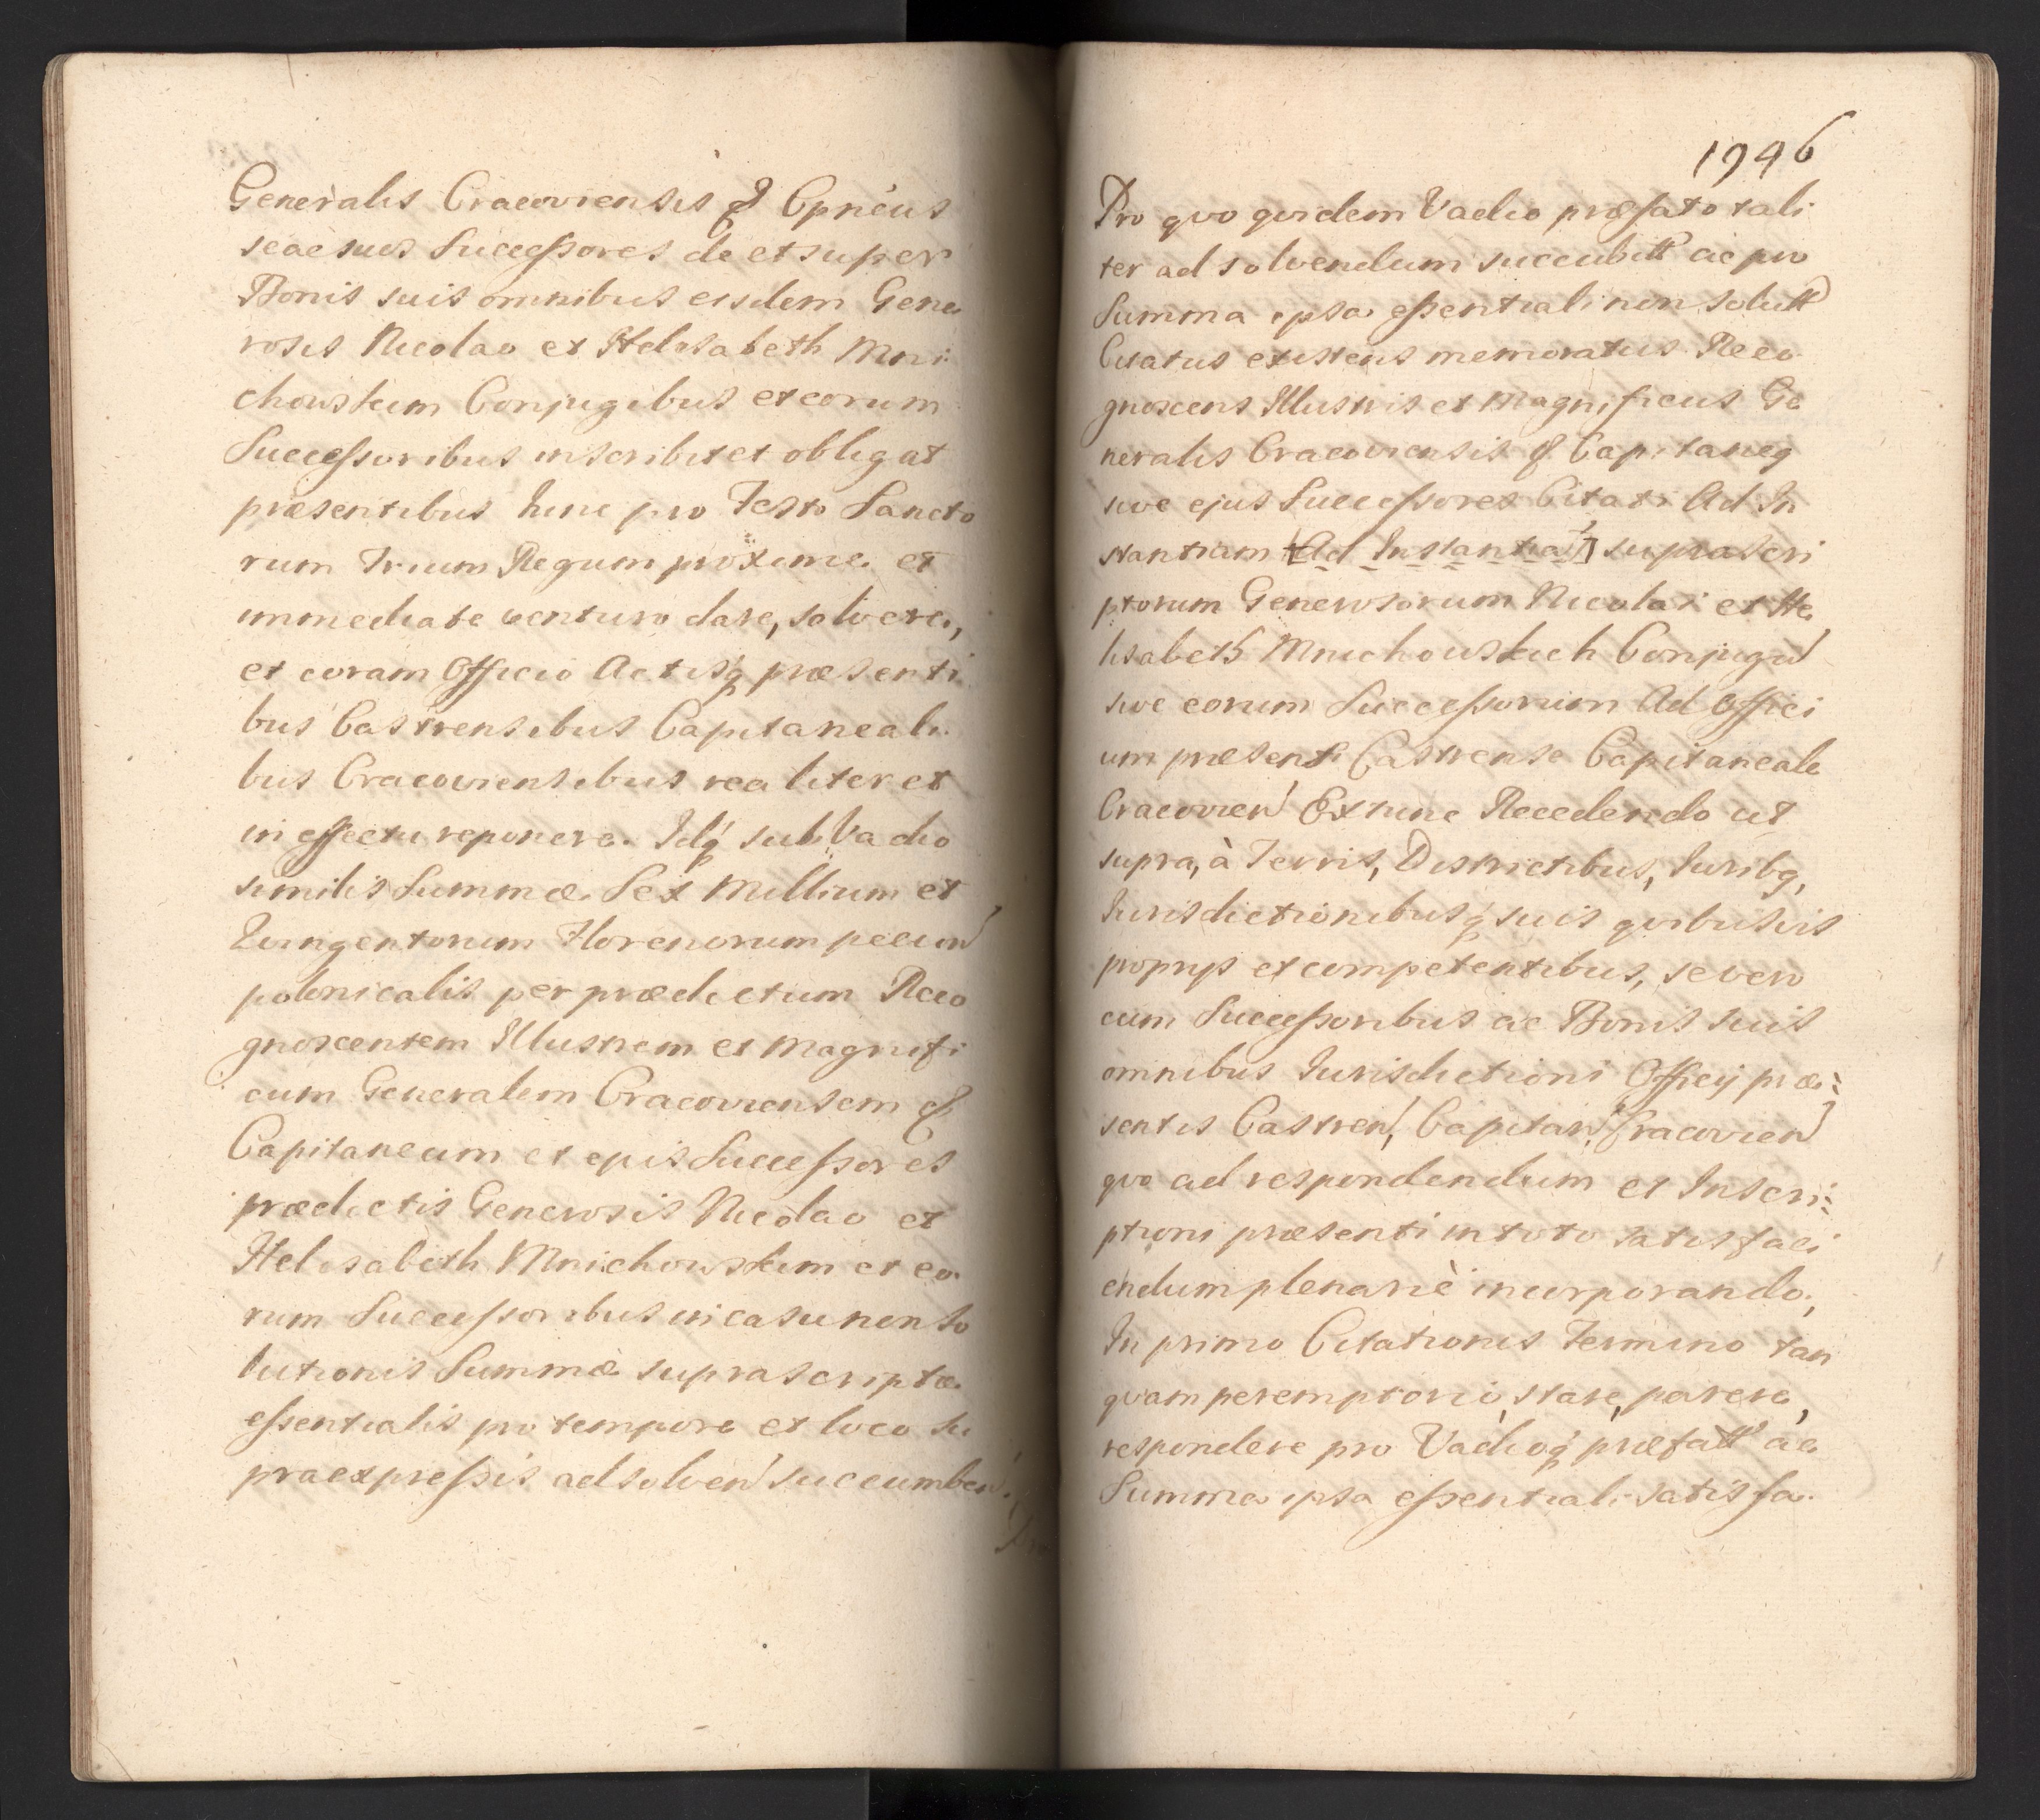 Generalis Cracoviensis & Cpnėus
seac suos Successores de et super
Bonis suis omnibus eisdem Gene
rosis Nicolao et Helisabeth Mni
chowskim Conjugibus et eorum
Successoribus inscribit et obligat
præsentibus hinc pro Festo Sancto
rum Trium Regum proxime et
immediate venturo dare, solvere,
et coram Officio Actisq́ præsenti
bus Castrensibus Capitaneali
bus Cracoviensibus realiter et
in effectu reponere. Idq́ sub Vadio
similis Summæ Sex Millium et
Quingentorum Florenorum pecun
polonicalis per prædictum Reco
gnoscentem Illustrem et Magnifi
cum Generalem Cracoviensem &
Capitaneum et ejus Successores
prædictis Generosis Nicolao et
Helisabeth Mnichowskim et eo
rum Successoribus in casu non so
lutionis Summæ suprascriptæ
essentialis pro tempore et loco su
praexpressis ad solven succumben.
Pro
1746
Pro quo quidem Vadio præfato tali
ter ad solvendum succubitt ac pro
Summa ipsa essentiali non solutt
Citatus existens memoratus Reco
gnoscens Illustris et Magnificus Ge
neralis Cracoviensis & Capitaneq
sive ejus Successores Citati Ad In
stantiam [Ad Instantia] suprascri
ptorum Generosorum Nicolai et He
lisabeth Mnichowskich Conjugu
sive eorum Successorum Ad Offici
um præsens Castrense Capitaneale
Cracovien Ex nunc Recedendo ut
supra, à Terris, Districtibus, Juribq,
Jurisdictionibusq́ suis quibusvis
proprijs et competentibus, se vero
cum Successoribus ac Bonis suis
omnibus Jurisdictioni Officij præ:
sentis Castren, Capitan, Cracovien
quo ad respondendum et Inscri:
ptioni præsenti in toto satisfaci
endum plenariè incorporando,
In primo Citationis Termino tan
quam peremptorio, stare, parere,
respondere pro Vadioq́ præfatt ac
Summa ipsa essentiali satisfa.